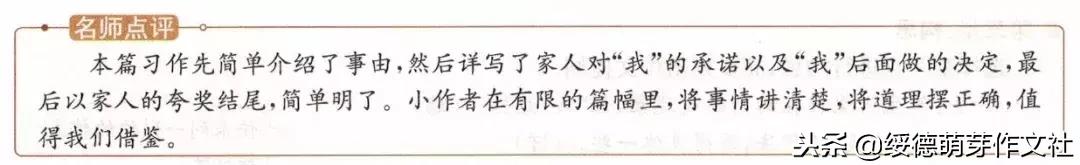 名师点评
本篇习作先简单介绍了事由,然后详写了家人对“我”的承诺以及“我”后面做的决定,最
后以家人的夸奖结尾,简单明了。小作者在有限的篇幅里,将事情讲清楚,将道理摆正确,值
得我们借鉴。
头条@绥德萌芽作文社